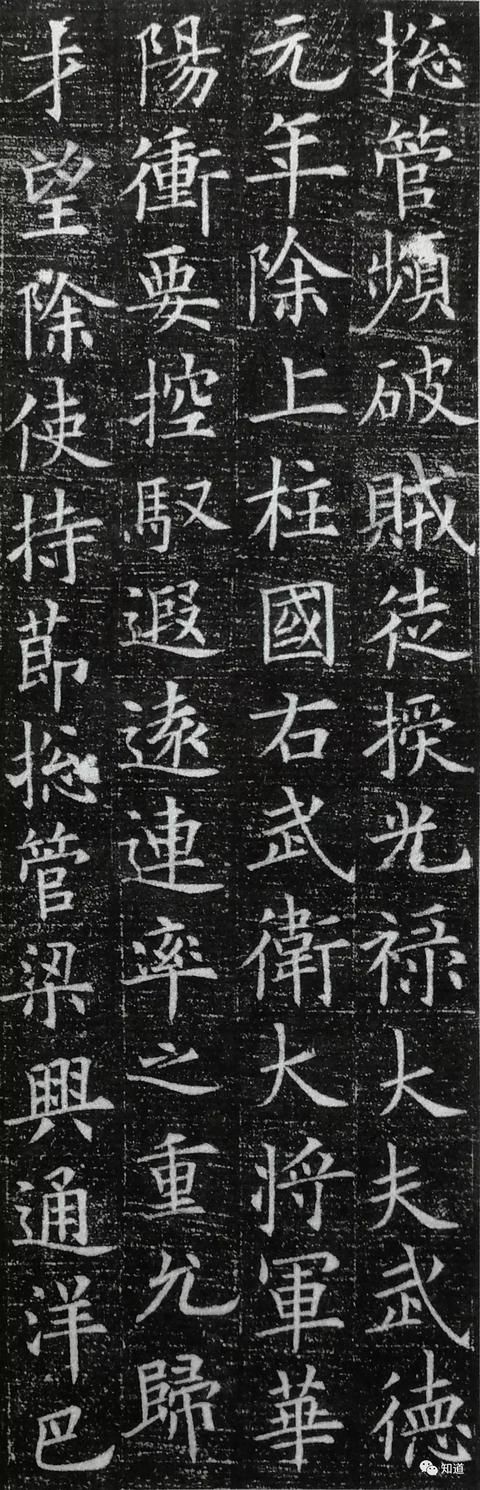 揔管頻破賊徒授光禄大夫武德
元年除上柱國右武衛大将軍華
陽衝要控馭遐逺連率之重允歸
才望除使持莭揔管梁興通洋巴
知道